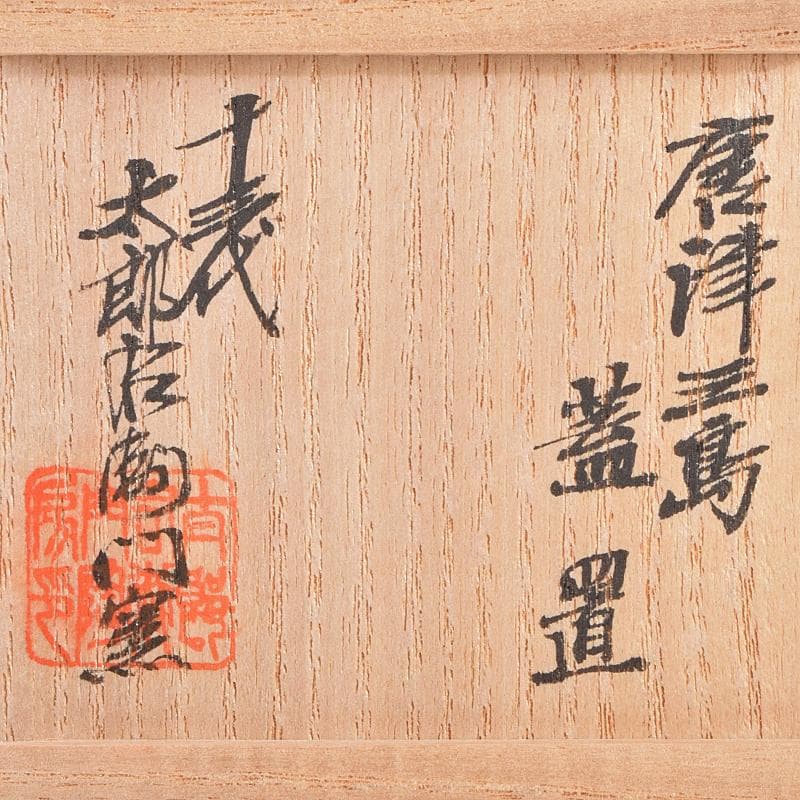 唐津三島
蓋置
十三代
太郎右衛門窯